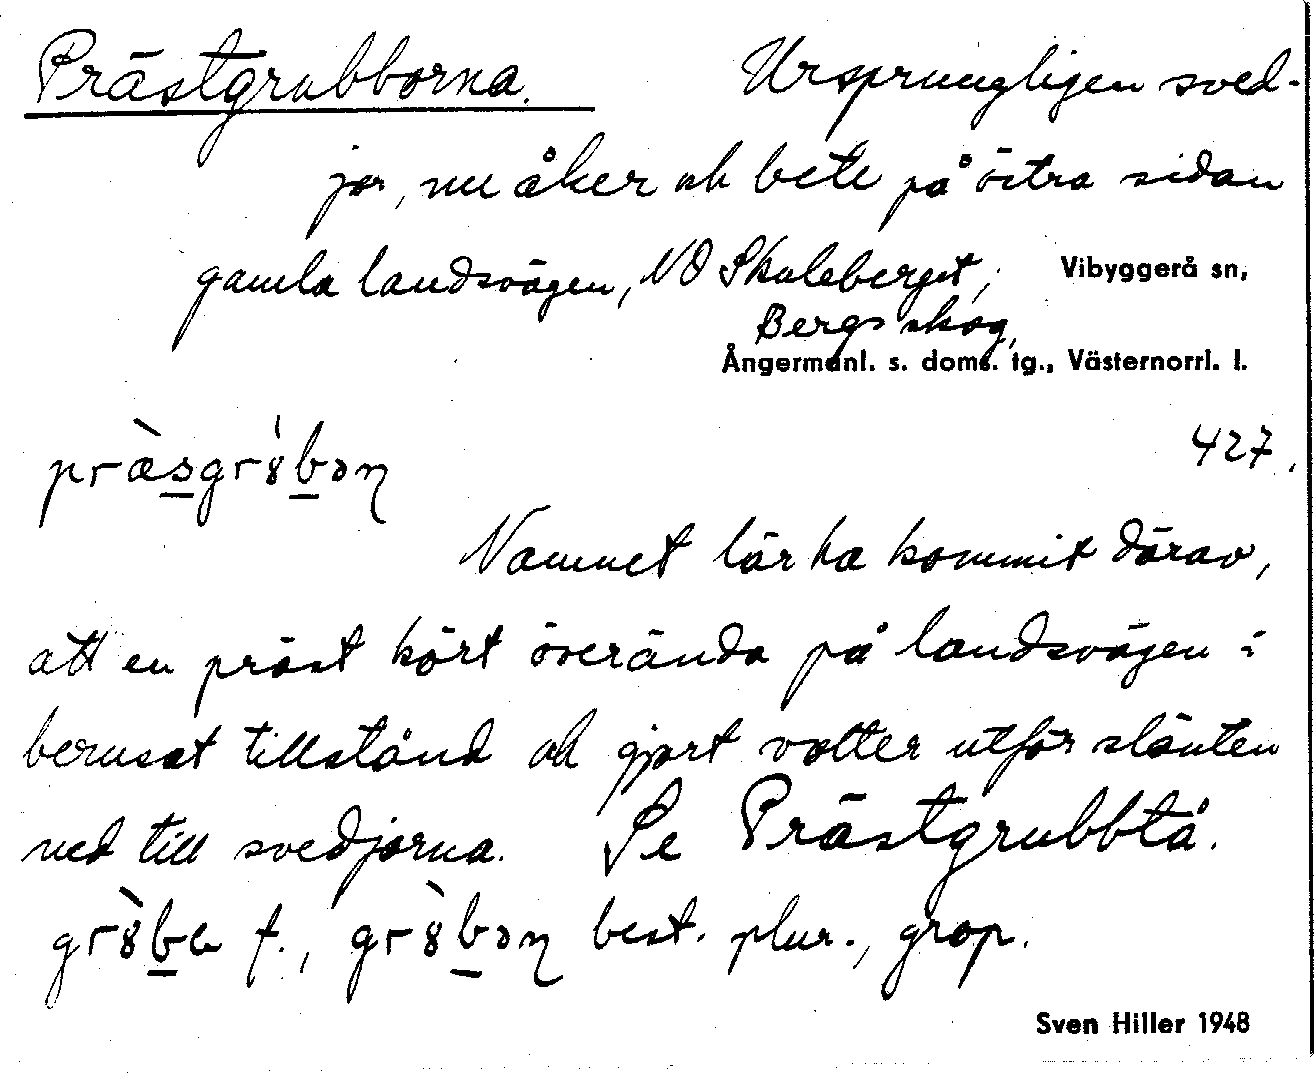 Prästgrubborna. Ursprungligen sved-
jor, nu åker och bete på östra sidan
gamla landsvägen, NO Skuleberget, Vibyggerå sn,
Bergs skog,
Ångermanl. s. doms. tg., Västernorrl. l.
præ̀sgr8̍bən 427.
Namnet lär ha kommit därav,
att en präst kört överända på landsvägen i
berusat tillstånd och gjort volter utför slänten
ned till svedjorna. Se Prästgrubbtå.
gr8̀ba f., gr8̀bən best. plur., grop.
Sven Hiller 1948